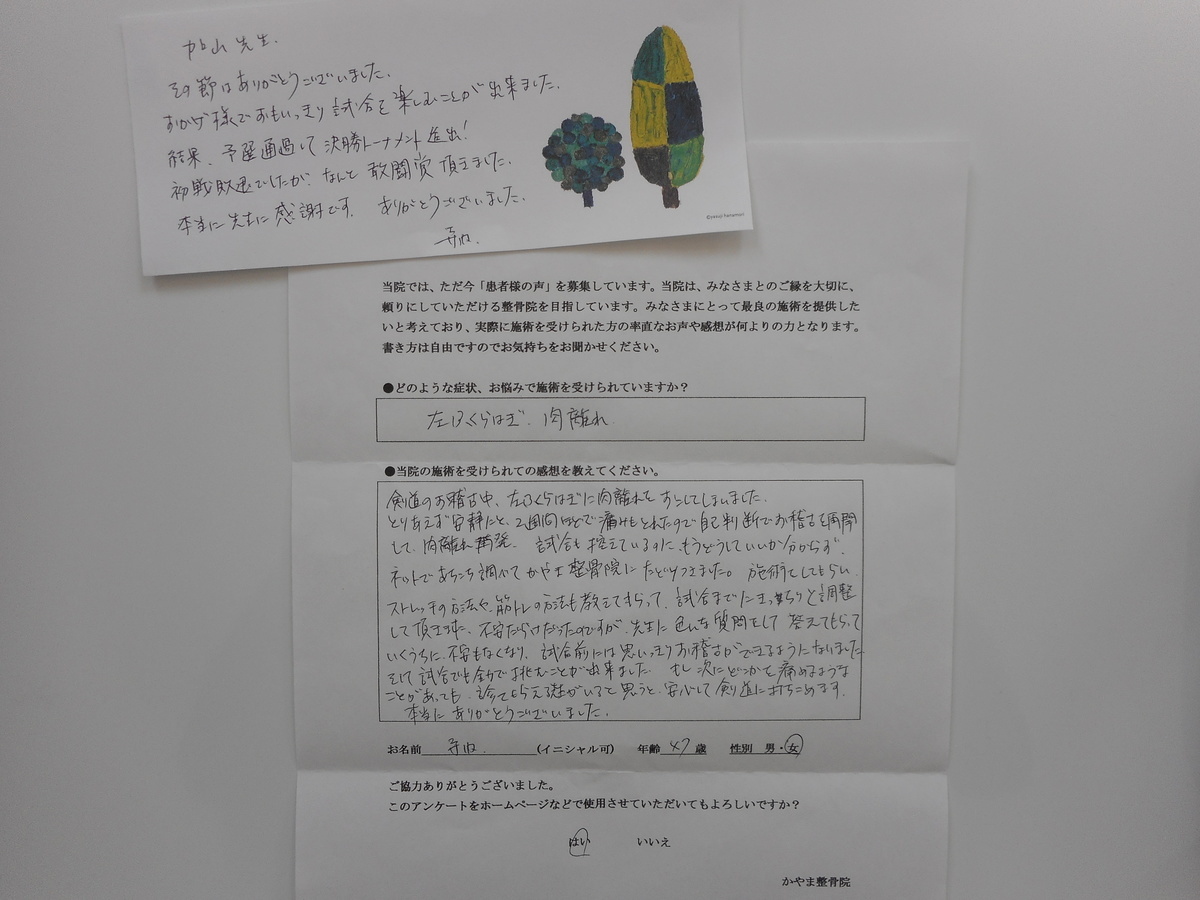 加山先生.
その節はありがとうございました.
おかげ様でおもいっきり試合を楽しむことが出来ました.
結果、予選通過して決勝トーナメント進出!
初戦敗退でしたが、なんと敢闘賞頂きました.
本当に先生に感謝です. ありがとうございました.
寺内.
©yasuji hanamori
当院では、ただ今「患者様の声」を募集しています。当院は、みなさまとのご縁を大切に、
頼りにしていただける整骨院を目指しています。みなさまにとって最良の施術を提供した
いと考えており、実際に施術を受けられた方の率直なお声や感想が何よりの力となります。
書き方は自由ですのでお気持ちをお聞かせください。
●どのような症状、お悩みで施術を受けられていますか?
左ふくらはぎ. 肉離れ
●当院の施術を受けられての感想を教えてください。
剣道のお稽古中、左ふくらはぎに肉離れをおこしてしまいました.
とりあえず安静にと、2週間ほどで痛みもとれたので自己判断でお稽古を再開
して、肉離れ再発. 試合も控えているのに、もうどうしていいか分からず、
ネットであちこち調べてかやま整骨院にたどりつきました。施術をしてもらい、
ストレッチの方法や、筋トレの方法も教えてもらって、試合までにきっちりと調整
して頂きました、不安だらけだったのですが、先生に色んな質問をして 答えてもらって
いくうちに、不安もなくなり、試合前には思いっきりお稽古ができるようになりました
そして試合でも全力で挑むことが出来ました. もし次にどこかを痛めるような
ことがあっても、診てもらえる先生がいると思うと、安心して剣道に打ちこめます.
本当にありがとうございました.
お名前 寺内. (イニシャル可) 年齢 47 歳 性別 男・女
ご協力ありがとうございました。
このアンケートをホームページなどで使用させていただいてもよろしいですか?
はい いいえ
かやま整骨院